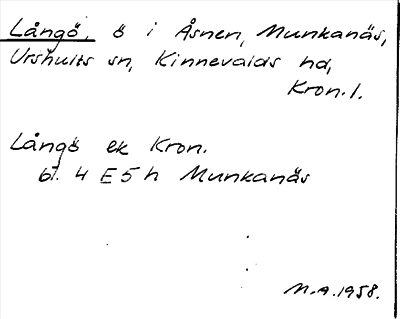 Långö, ö i Åsnen, Munkanäs,
Urshults sn, Kinnevalds hd,
Kron. l.
Långö ek Kron.
bl. 4 E5h Munkanäs
M.A. 1958.